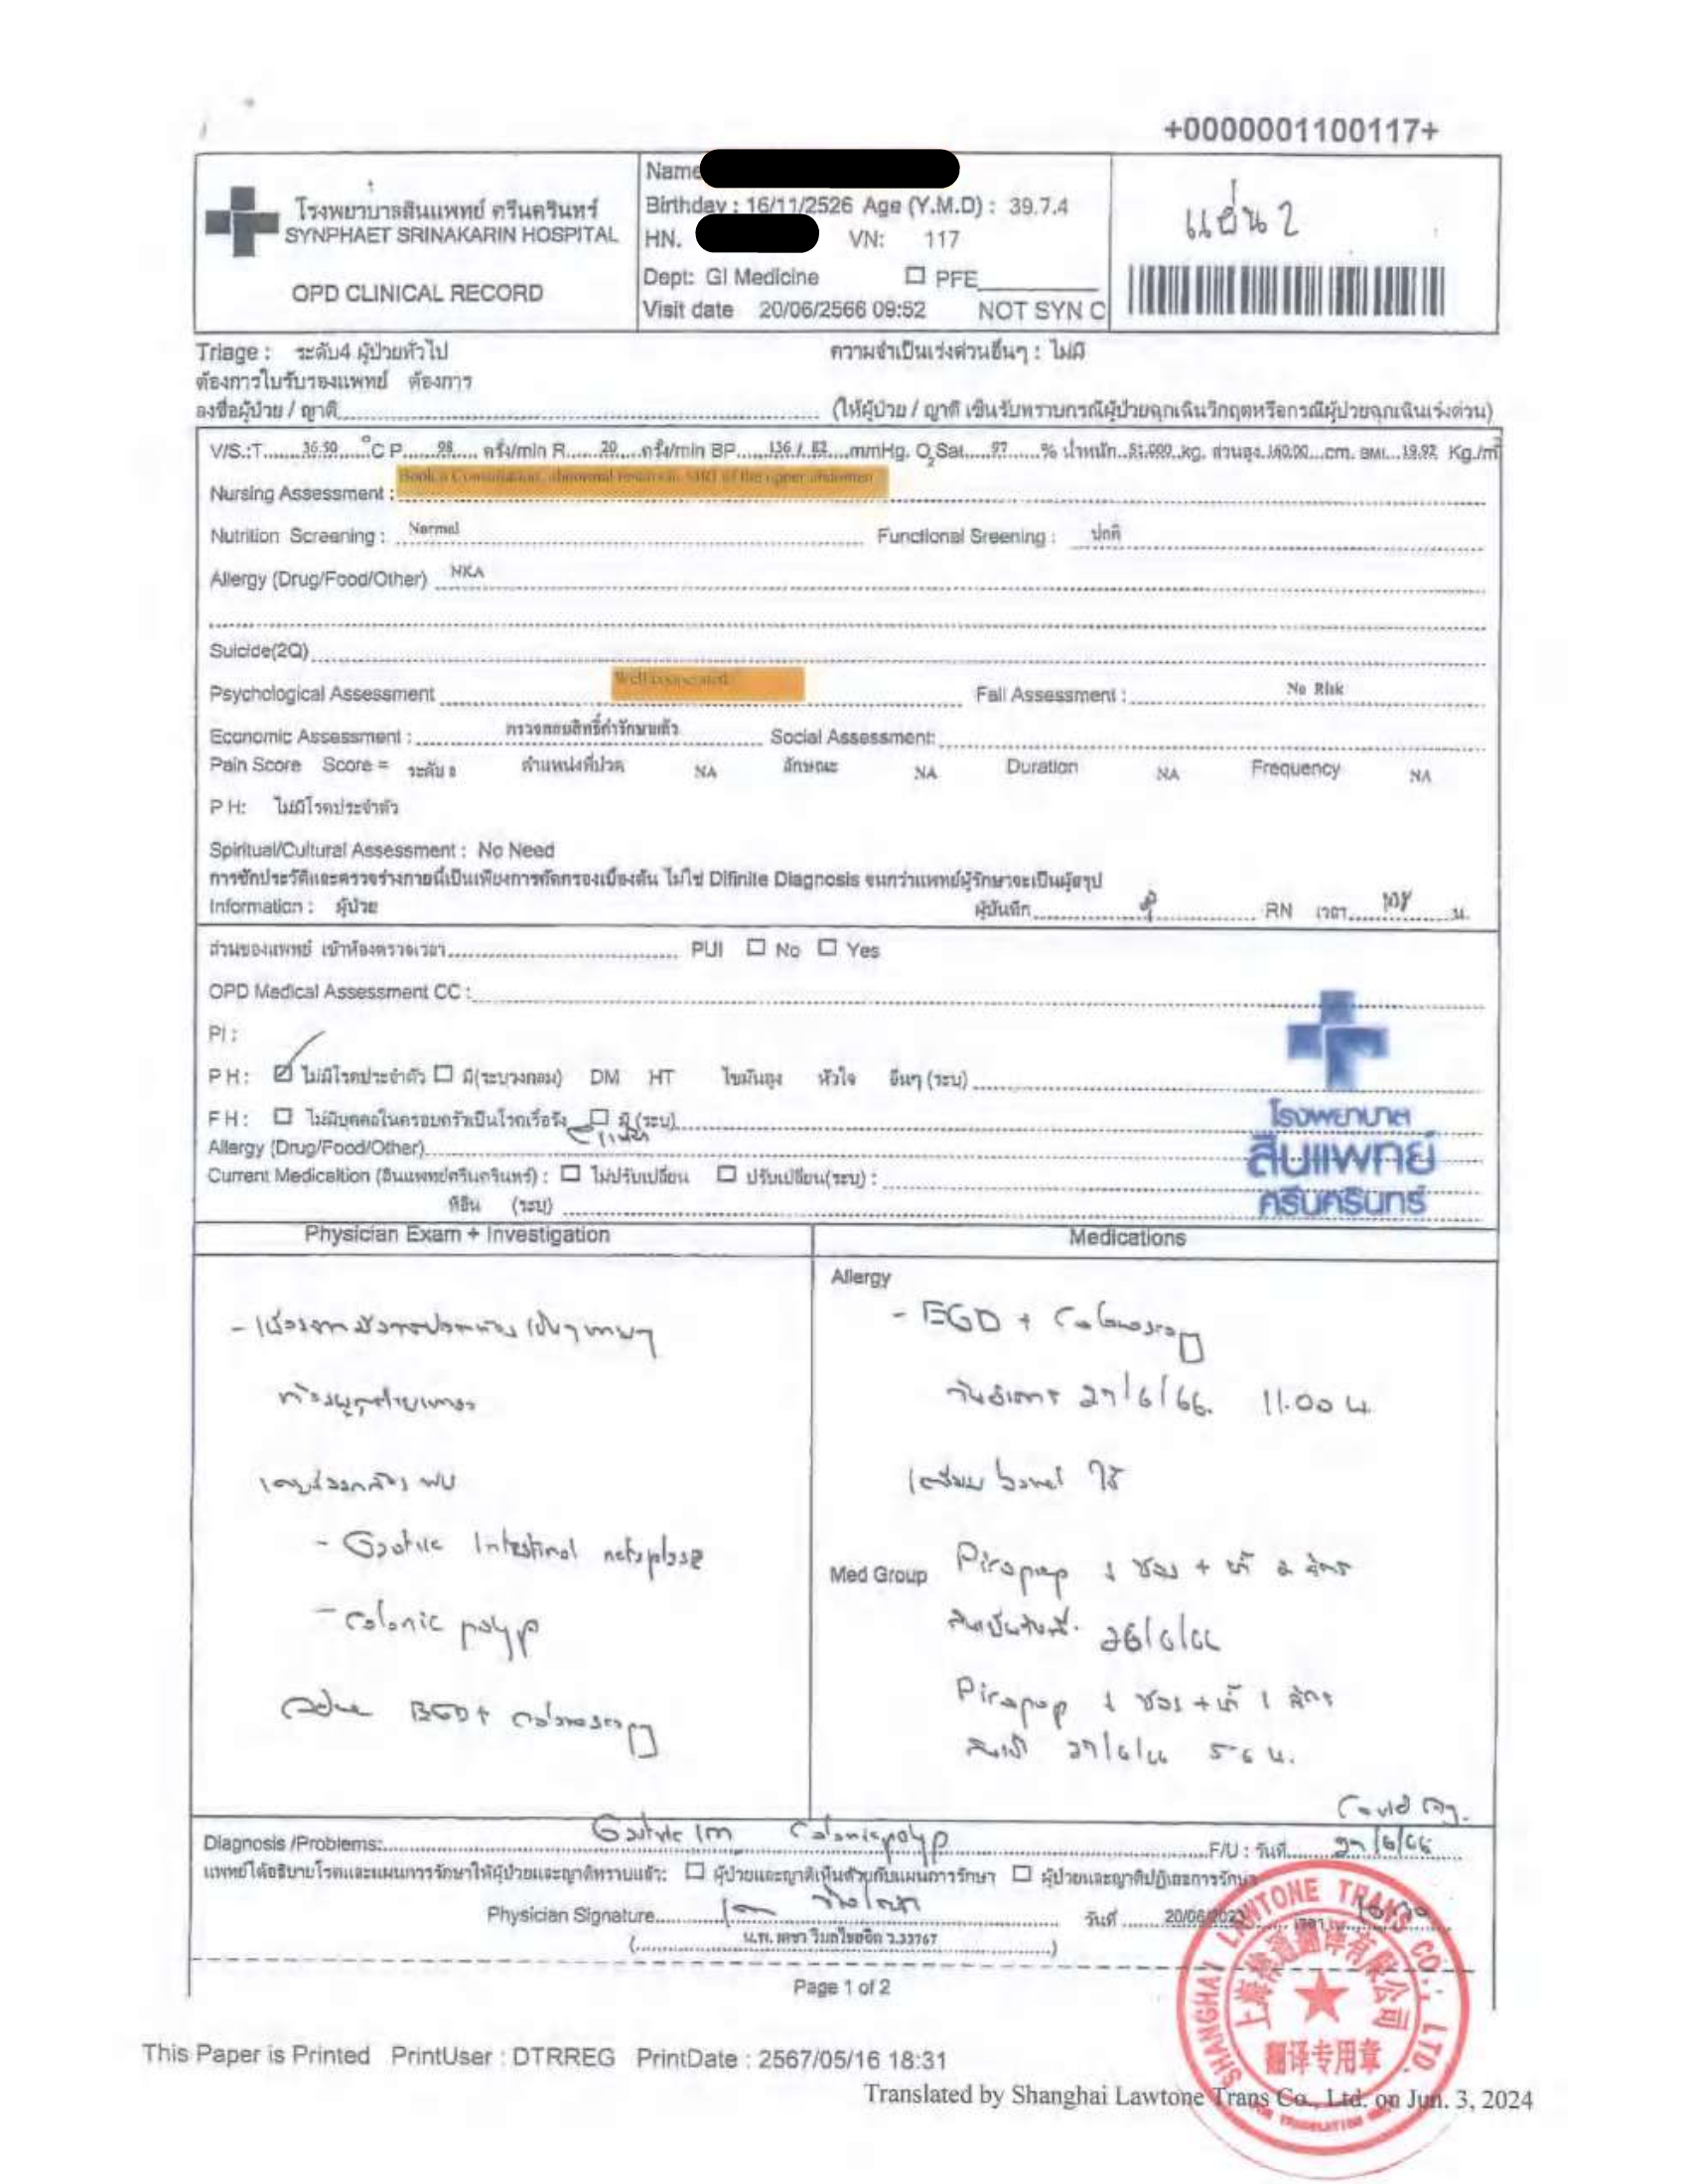 +0000001100117+
โรงพยาบาลสินแพทย์ ศรีนครินทร์
SYNPHAET SRINAKARIN HOSPITAL
OPD CLINICAL RECORD
Name
Birthday : 16/11/2526 Age (Y.M.D) : 39.7.4
HN. VN: 117
Dept: GI Medicine ☐ PFE
Visit date 20/06/2566 09:52 NOT SYN C
แผ่น 2
Triage : ระดับ4 ผู้ป่วยทั่วไป ความจำเป็นเร่งด่วนอื่นๆ : ไม่มี
ต้องการใบรับรองแพทย์ ต้องการ
ลงชื่อผู้ป่วย / ญาติ (ให้ผู้ป่วย / ญาติ เซ็นรับทราบกรณีผู้ป่วยฉุกเฉินวิกฤตหรือกรณีผู้ป่วยฉุกเฉินเร่งด่วน)
V/S.:T 36.50 °C P 98 ครั้ง/min R 20 ครั้ง/min BP 136 / 82 mmHg. O2Sat 97 % น้ำหนัก 51.000 kg. ส่วนสูง 160.00 cm. BMI 19.92 Kg./m2
Nursing Assessment : Book a Consultation, abnormal result in MRI of the upper abdomen
Nutrition Screening : Normal Functional Sreening : ปกติ
Allergy (Drug/Food/Other) NKA
Suicide(2Q)
Psychological Assessment Well cooperated Fall Assessment : No Risk
Economic Assessment : ตรวจสอบสิทธิ์ค่ารักษาแล้ว Social Assessment:
Pain Score Score = ระดับ 0 ตำแหน่งที่ปวด NA ลักษณะ NA Duration NA Frequency NA
P H: ไม่มีโรคประจำตัว
Spiritual/Cultural Assessment : No Need
การซักประวัติและตรวจร่างกายนี้เป็นเพียงการคัดกรองเบื้องต้น ไม่ใช่ Difinite Diagnosis จนกว่าแพทย์ผู้รักษาจะเป็นผู้สรุป
Information : ผู้ป่วย ผู้บันทึก RN เวลา น.
ส่วนของแพทย์ เข้าห้องตรวจเวลา PUI ☐ No ☐ Yes
OPD Medical Assessment CC :
PI :
P H : ☑ ไม่มีโรคประจำตัว ☐ มี(ระบุวงกลม) DM HT ไขมันสูง หัวใจ อื่นๆ (ระบุ)
F H : ☐ ไม่มีบุคคลในครอบครัวเป็นโรคเรื้อรัง ☐ มี (ระบุ)
Allergy (Drug/Food/Other)
Current Medicaltion (สินแพทย์ศรีนครินทร์) : ☐ ไม่ปรับเปลี่ยน ☐ ปรับเปลี่ยน(ระบุ) :
ที่อื่น (ระบุ)
โรงพยาบาล
สินแพทย์
ศรีนครินทร์
Physician Exam + Investigation
- เนื่องจากมีอาการปวดท้อง เป็นๆหายๆ
ท้องผูกถ่ายเหลว
เคยส่องกล้อง พบ
- Gastric Intestinal metaplasia
- Colonic polyp
EGD + colonoscopy
Medications
Allergy
- EGD + Colonoscopy
วันอังคาร 27/6/66. 11.00 น.
เตรียม bowel ใช้
Med Group Pirapop 1 ซอง + น้ำ 2 ลิตร
26/6/66
Pirapop 1 ซอง + น้ำ 1 ลิตร
27/6/66 5-6 น.
Covid Ag.
Diagnosis /Problems: Gastric IM Colonic polyp F/U : วันที่ 27/6/66
แพทย์ได้อธิบายโรคและแผนการรักษาให้ผู้ป่วยและญาติทราบแล้ว: ☐ ผู้ป่วยและญาติเห็นด้วยกับแผนการรักษา ☐ ผู้ป่วยและญาติปฏิเสธการรักษา
Physician Signature วันที่ 20/06/2023 เวลา
(น.พ. เดชา วิมลไชยจิต ว.33767)
Page 1 of 2
SHANGHAI LAWTONE TRANS CO., LTD.
上海樂通翻译有限公司
翻译专用章
FOR TRANSLATION ONLY
This Paper is Printed PrintUser : DTRREG PrintDate : 2567/05/16 18:31
Translated by Shanghai Lawtone Trans Co., Ltd. on Jun. 3, 2024